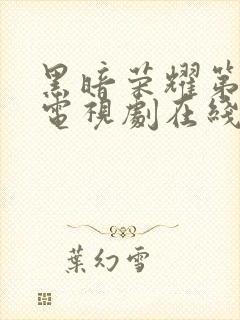 黑暗荣耀第
電視劇在綫
葉幻雪